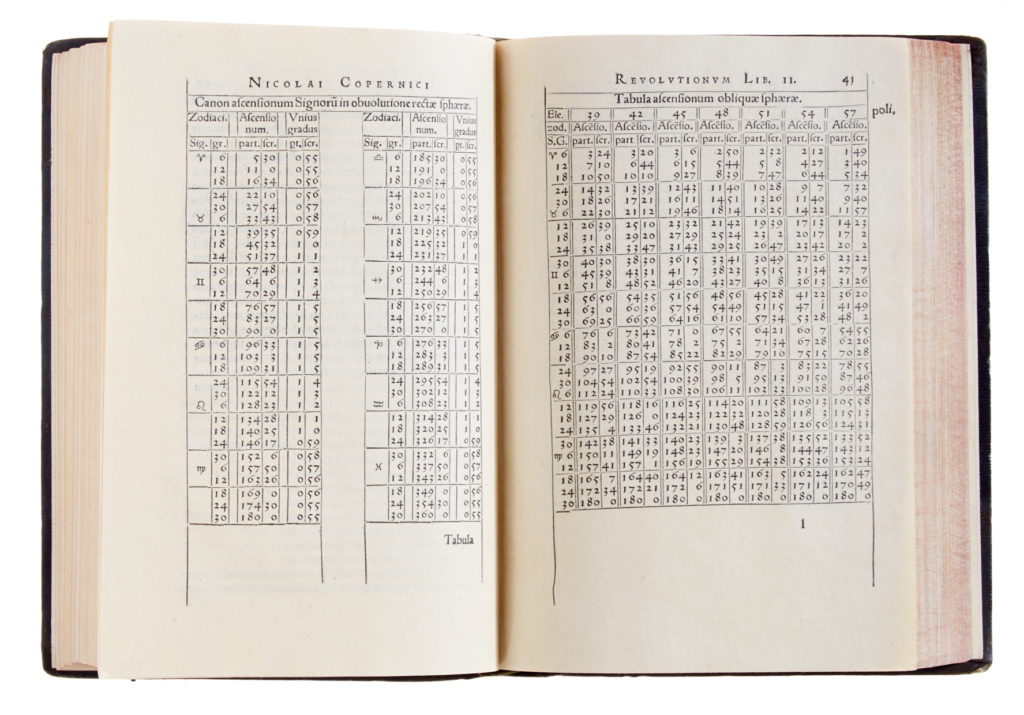 NICOLAI COPERNICI
Canon ascensionum Signorũ in obuolutione rectæ sphæræ.
Zodiaci. Ascensio Vnius Zodiaci. Ascensio Vnius
num. gradus num. gradus
Sig. gr. part. scr. pt. scr. Sig. gr. part. scr. pt. scr.
♈ 6 5 30 0 55 ♎ 6 185 30 0 55
12 11 0 0 55 12 191 0 0 55
18 16 34 0 56 18 196 34 0 56
24 22 10 0 56 24 202 10 0 56
30 27 54 0 57 30 207 54 0 57
♉ 6 33 43 0 58 ♏ 6 213 43 0 58
12 39 35 0 59 12 219 35 0 59
18 45 32 1 0 18 225 32 1 0
24 51 37 1 1 24 231 37 1 1
30 57 48 1 2 30 232 48 1 2
♊ 6 64 6 1 3 ♐ 6 244 6 1 3
12 70 29 1 4 12 250 29 1 4
18 76 57 1 5 18 256 57 1 5
24 83 27 1 5 24 263 27 1 5
30 90 0 1 5 30 270 0 1 5
♋ 6 96 33 1 5 ♑ 6 276 33 1 5
12 103 3 1 5 12 283 3 1 5
18 109 31 1 5 18 289 31 1 5
24 115 54 1 4 24 295 54 1 4
30 122 12 1 3 30 302 12 1 3
♌ 6 128 23 1 2 ♒ 6 308 23 1 2
12 134 28 1 1 12 314 28 1 1
18 140 25 1 0 18 320 25 1 0
24 146 17 0 59 24 326 17 0 59
30 152 6 0 58 30 332 6 0 58
♍ 6 157 50 0 57 ♓ 6 337 50 0 57
12 163 26 0 56 12 343 26 0 56
18 169 0 0 56 18 349 0 0 56
24 174 30 0 55 24 354 30 0 55
30 180 0 0 55 30 360 0 0 55
Tabula
REVOLVTIONVM LIB. II. 41
Tabula ascensionum obliquæ sphæræ.
Ele. 39 42 45 48 51 54 57 poli.
zod. Ascẽsio. Ascẽsio. Ascẽsio. Ascẽsio. Ascẽsio. Ascẽsio. Ascẽsio.
S.G. part. scr. part. scr. part. scr. part. scr. part. scr. part. scr. part. scr.
♈ 6 3 34 3 20 3 6 2 50 2 32 2 12 1 49
12 7 10 6 44 6 15 5 44 5 8 4 27 3 40
18 10 50 10 10 9 27 8 39 7 47 6 44 5 34
24 14 32 13 39 12 43 11 40 10 28 9 7 7 32
30 18 26 17 21 16 11 14 51 13 26 11 40 9 40
♉ 6 22 30 21 12 19 46 18 14 16 25 14 22 11 57
12 26 39 25 10 23 32 21 42 19 39 17 13 14 23
18 31 0 29 20 27 29 25 24 23 2 20 17 17 2
24 35 38 33 47 31 43 29 25 26 47 23 42 20 2
30 40 30 38 30 36 15 33 41 30 49 27 26 23 22
♊ 6 45 39 43 31 41 7 38 23 35 15 31 34 27 7
12 51 8 48 52 46 20 43 27 40 8 36 13 31 26
18 56 56 54 35 51 56 48 56 45 28 41 22 36 20
24 63 0 60 36 57 54 54 49 51 15 47 1 41 49
30 69 25 66 59 64 16 61 10 57 34 53 28 48 2
♋ 6 76 6 73 42 71 0 67 55 64 21 60 7 54 55
12 83 2 80 41 78 2 75 2 71 34 67 28 62 26
18 90 10 87 54 85 22 82 29 79 10 75 15 70 28
24 97 27 95 19 92 55 90 11 87 3 83 22 78 55
30 104 54 102 54 100 39 98 5 95 13 91 50 87 46
♌ 6 112 24 110 33 108 30 106 11 103 33 100 28 96 48
12 119 56 118 16 116 25 114 20 111 58 109 13 105 58
18 127 29 126 0 124 23 122 32 120 28 118 3 115 13
24 135 4 133 46 132 21 130 48 128 59 126 56 124 31
30 142 38 141 33 140 23 139 3 137 38 135 52 133 52
♍ 6 150 11 149 19 148 23 147 20 146 8 144 47 143 12
12 157 41 157 1 156 19 155 29 154 38 153 36 153 24
18 165 7 164 40 164 12 163 41 163 5 162 24 162 47
24 172 34 172 21 172 6 171 51 171 33 171 12 170 49
30 180 0 180 0 180 0 180 0 180 0 180 0 180 0
l